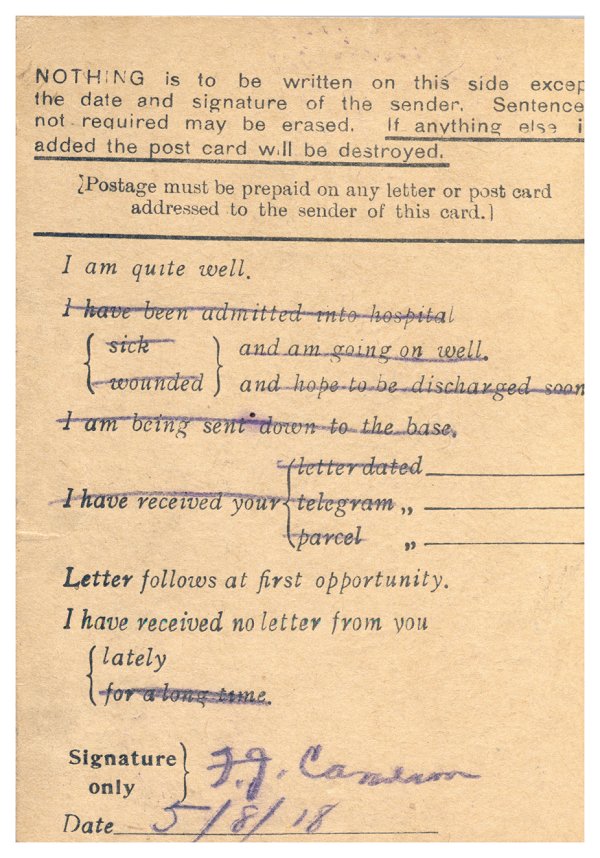 NOTHING is to be written on this side excep
the date and signature of the sender. Sentence
not required may be erased. If anything else i
added the post card will be destroyed.
[Postage must be prepaid on any letter or post card
addressed to the sender of this card.]
I am quite well.
I have been admitted into hospital
sick and am going on well.
wounded and hope to be discharged soon
I am being sent down to the base.
letter dated
I have received your telegram „
parcel „
Letter follows at first opportunity.
I have received no letter from you
lately
for a long time.
Signature
only
Date 5/8/18